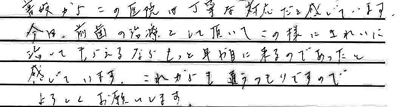 普段からこの医院は丁寧な対応だと感じています。
今日、前歯の治療をして頂いてこの様にきれいに
治してもらえるならもっと早めに来るのであったと
感じています。これからも通うつもりですので
よろしくお願いします。